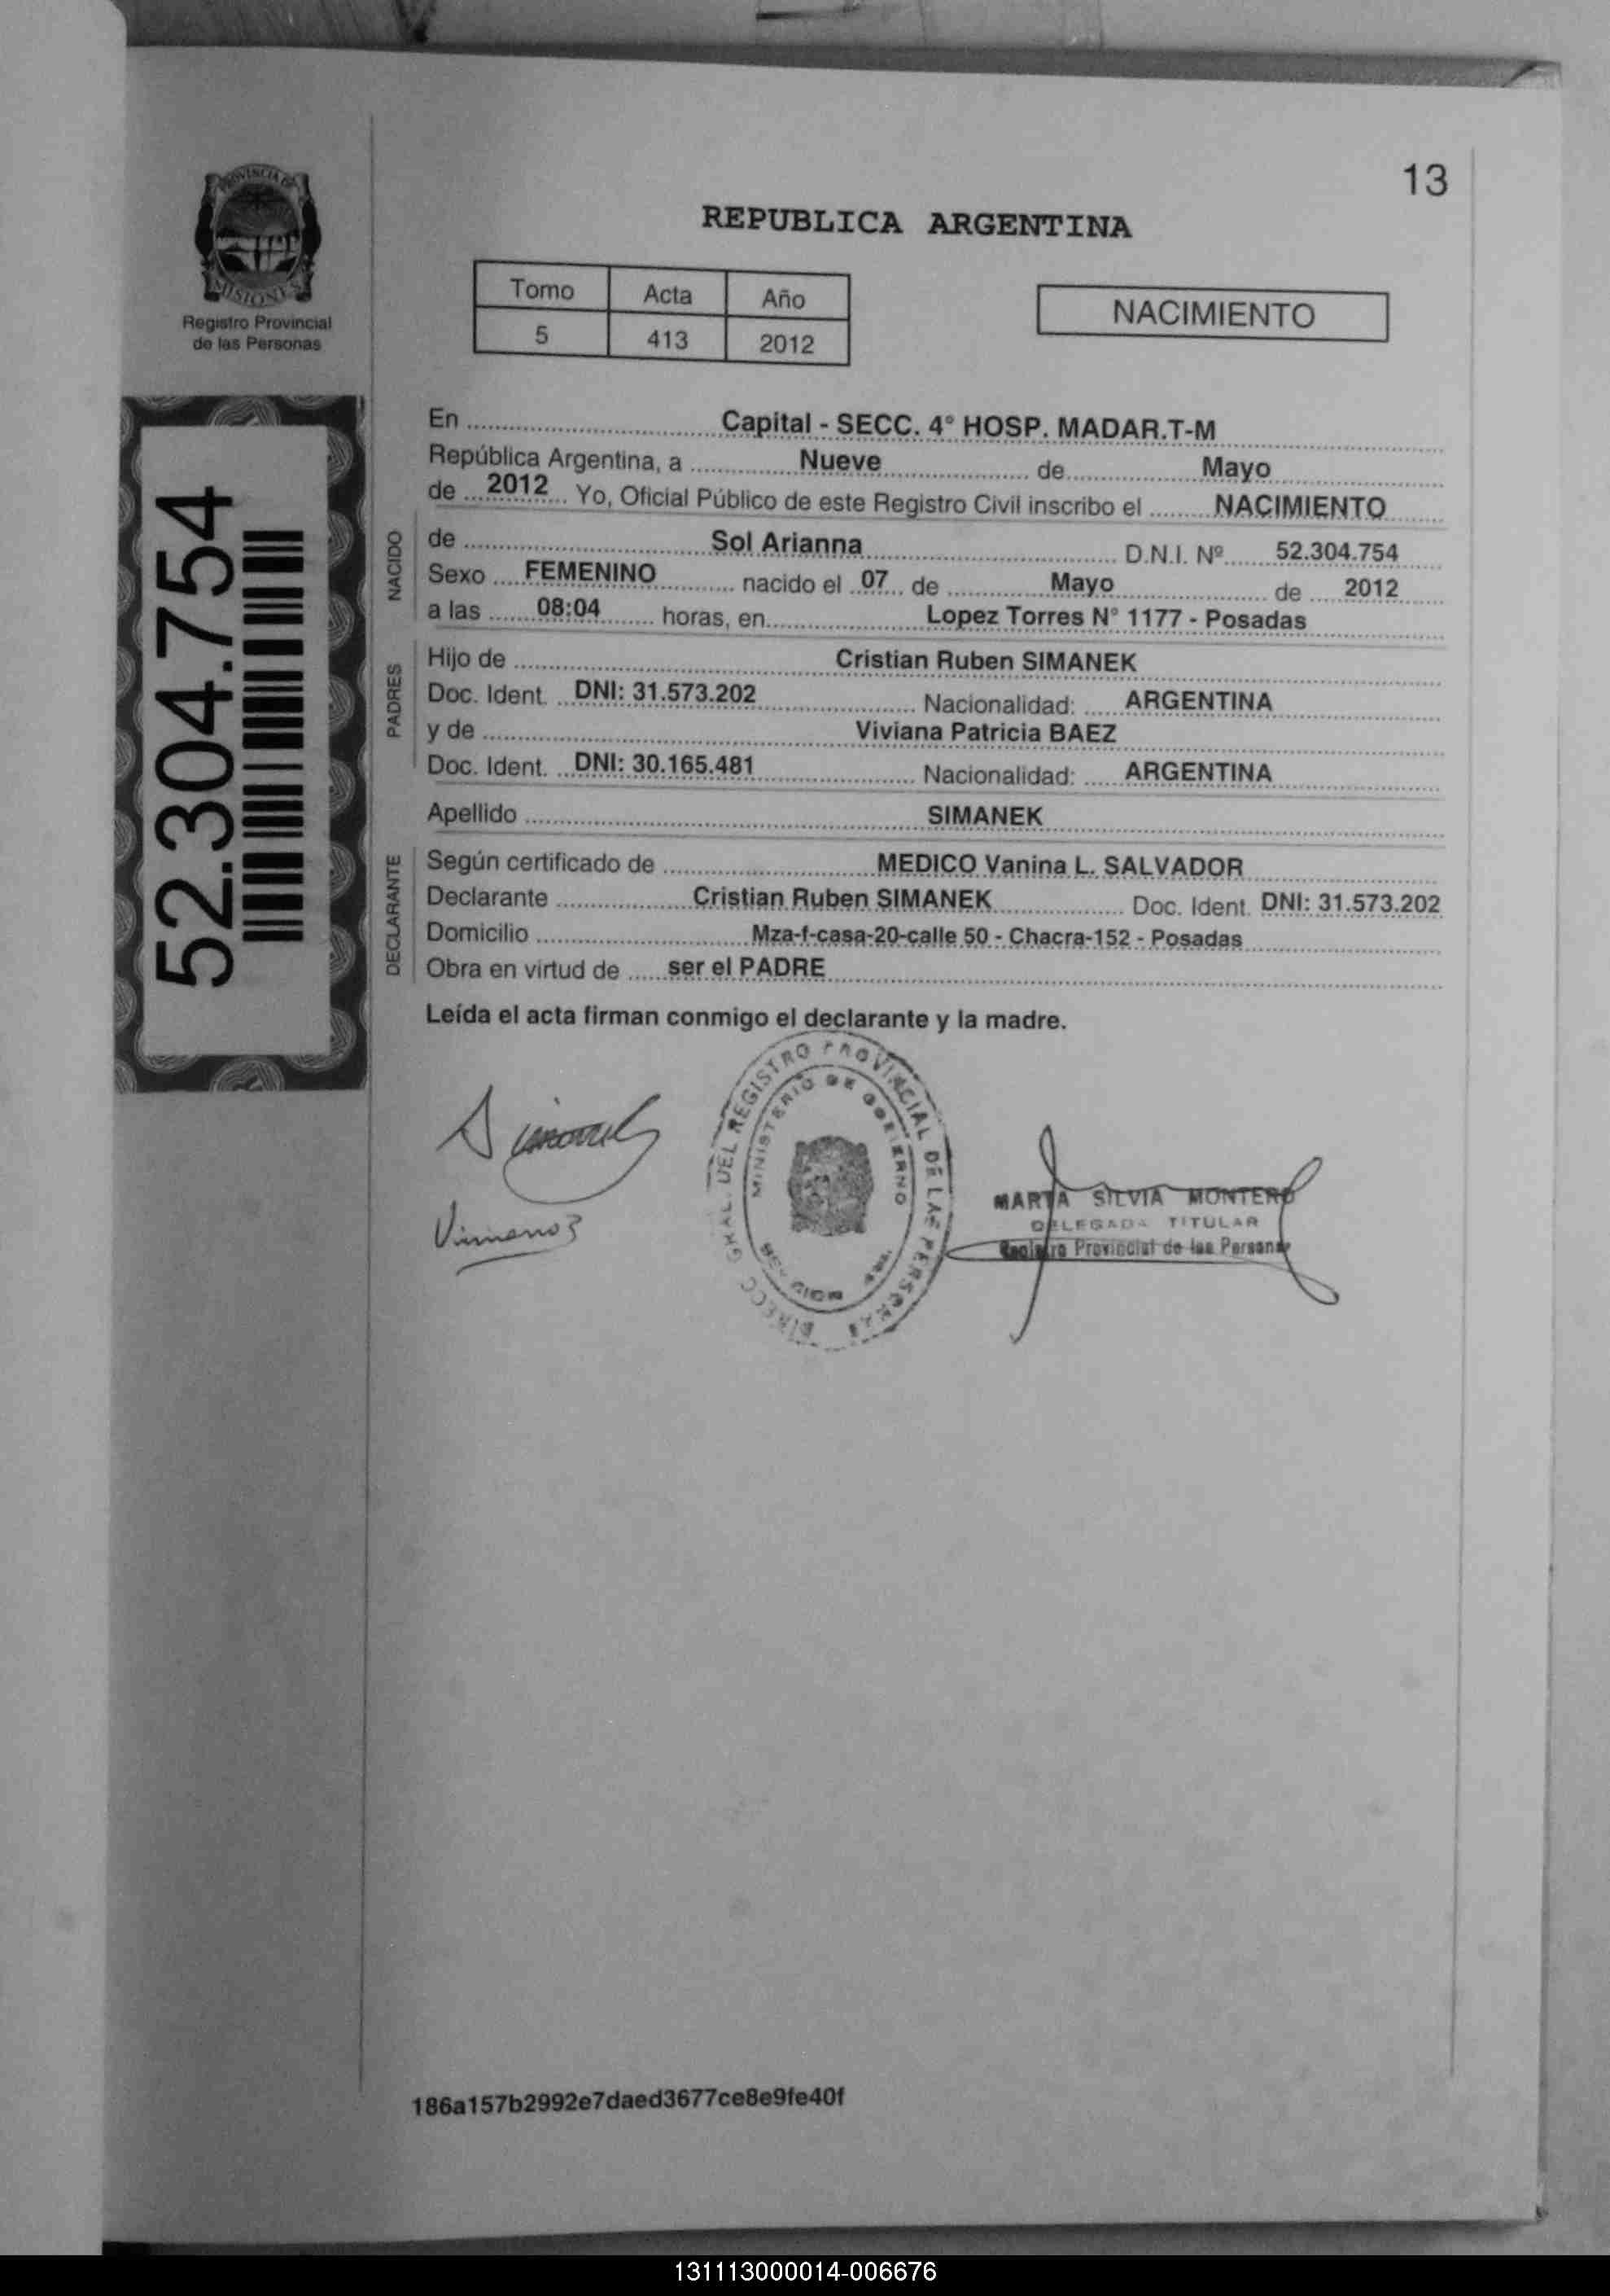 13
PROVINCIA DE
MISIONES
Registro Provincial
de las Personas
REPUBLICA ARGENTINA
Tomo Acta Año
5 413 2012
NACIMIENTO
52.304.754
En Capital - SECC. 4° HOSP. MADAR.T-M
República Argentina, a Nueve de Mayo
de 2012 Yo, Oficial Público de este Registro Civil inscribo el NACIMIENTO
NACIDO
de Sol Arianna D.N.I. Nº 52.304.754
Sexo FEMENINO nacido el 07 de Mayo de 2012
a las 08:04 horas, en Lopez Torres N° 1177 - Posadas
PADRES
Hijo de Cristian Ruben SIMANEK
Doc. Ident. DNI: 31.573.202 Nacionalidad: ARGENTINA
y de Viviana Patricia BAEZ
Doc. Ident. DNI: 30.165.481 Nacionalidad: ARGENTINA
Apellido SIMANEK
DECLARANTE
Según certificado de MEDICO Vanina L. SALVADOR
Declarante Cristian Ruben SIMANEK Doc. Ident. DNI: 31.573.202
Domicilio Mza-f-casa-20-calle 50 - Chacra-152 - Posadas
Obra en virtud de ser el PADRE
Leída el acta firman conmigo el declarante y la madre.
DIRECC GRAL. DEL REGISTRO PROVINCIAL DE LAS PERSONAS
MINISTERIO DE GOBIERNO
MARTA SILVIA MONTERO
DELEGADA TITULAR
Registro Provincial de las Personas
186a157b2992e7daed3677ce8e9fe40f
131113000014-006676